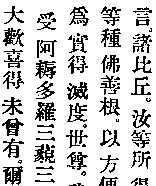 言。諸比丘。汝等所得
等種佛善根。以方便
爲實得滅度。世尊。
受阿耨多羅三藐三
大歡喜得未曾有。爾